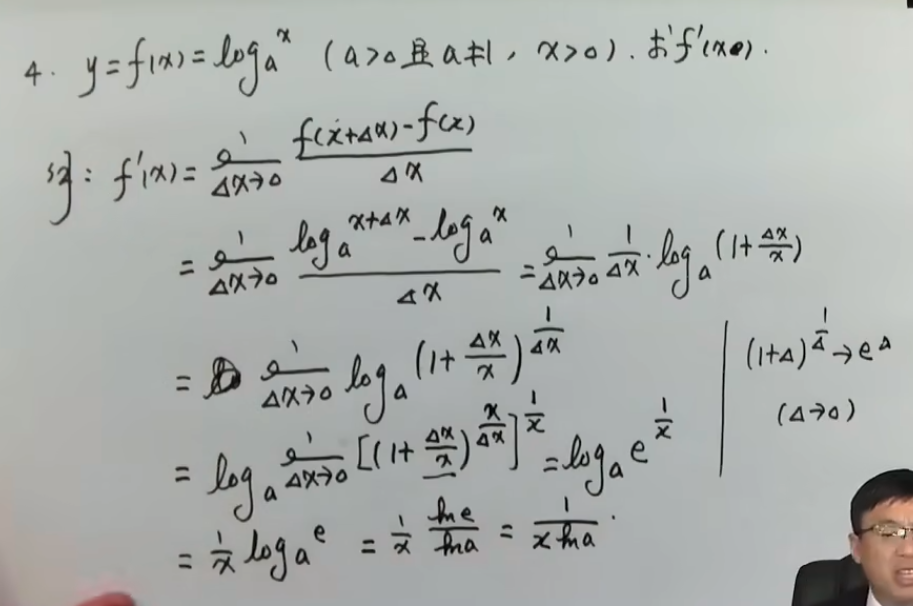 4. y=f(x)=logₐˣ (a>0且a≠1, x>0). 求f'(x).
解: f'(x)=lim_{Δx→0} \frac{f(x+Δx)-f(x)}{Δx}
=lim_{Δx→0} \frac{logₐ^{x+Δx}-logₐ^{x}}{Δx} =lim_{Δx→0} \frac{1}{Δx}·logₐ^{(1+\frac{Δx}{x})}
= lim_{Δx→0} logₐ(1+\frac{Δx}{x})^{\frac{1}{Δx}}
= logₐ lim_{Δx→0}[(1+\frac{Δx}{x})^{\frac{x}{Δx}}]^{\frac{1}{x}} =logₐ e^{\frac{1}{x}}
= \frac{1}{x} logₐ^{e} = \frac{1}{x} \frac{lne}{lna} = \frac{1}{x lna}.
(1+Δ)^{\frac{1}{Δ}}→e
(Δ→0)